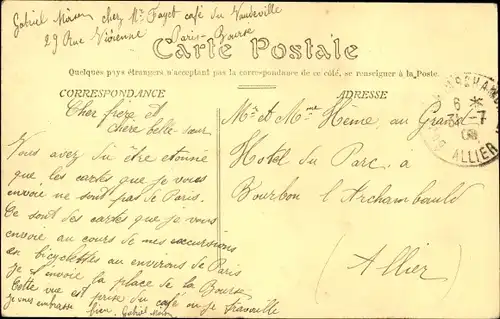 Gabriel chez Mr Fayet café du Vaudeville
29 Rue Vivienne Paris-Bourse
Carte Postale
Quelques pays étrangers n'acceptant pas la correspondance de ce côté, se renseigner à la Poste.
CORRESPONDANCE
Cher frère et
chère belle sœur
Vous avez du être étonné
que les cartes que je vous
envoie ne sont pas de Paris.
Ce sont des cartes que je vous
envoie au cours de mes excursions
en bicyclettes au environs de Paris
Je t'envoie la place de la Bourse
Cette vue est prise du café ou je travaille
Je vous embrasse bien. Gabriel
ADRESSE
Mr et Mme Hème au Grand
Hotel du Parc a
Bourbon l'Archambauld
(Allier)
6 *
31-7
ALLIER